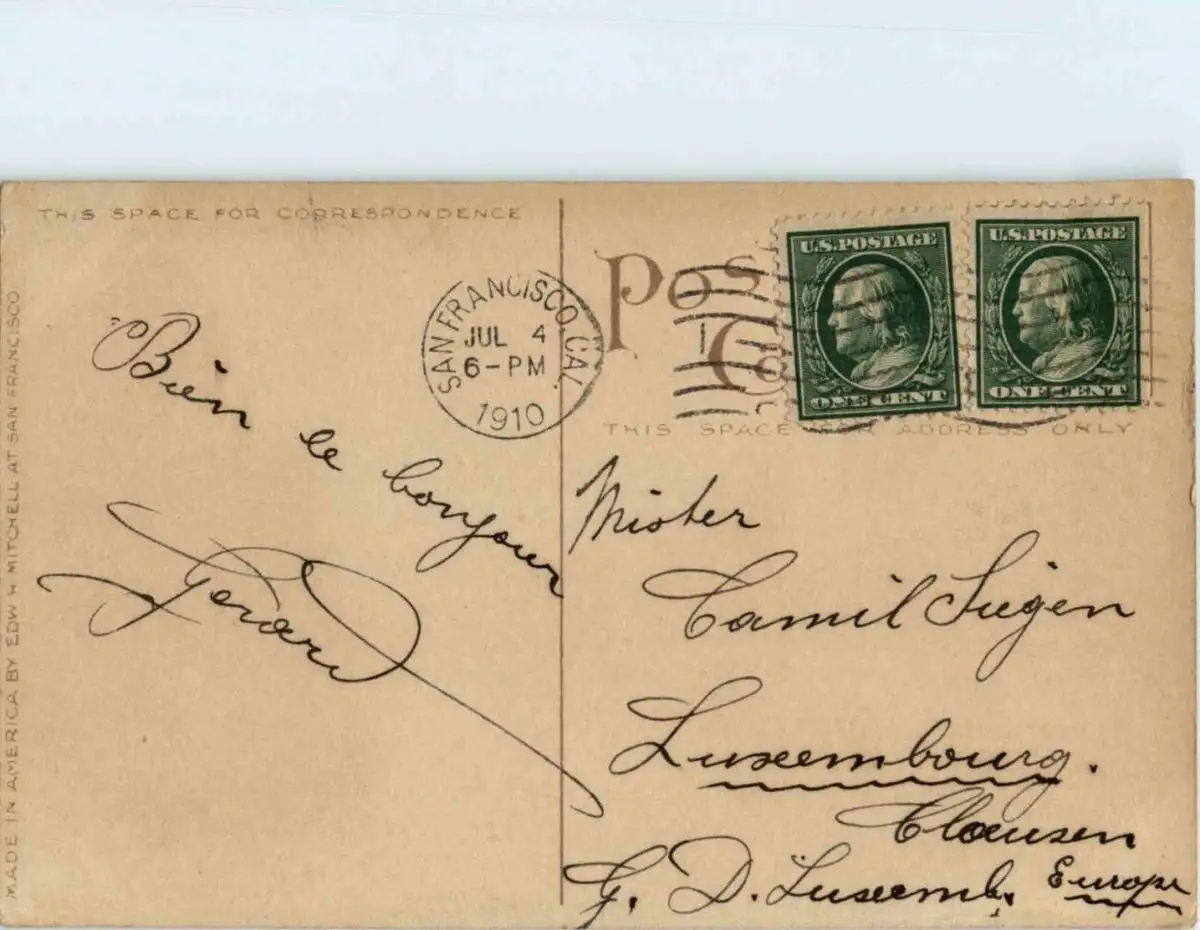 THIS SPACE FOR CORRESPONDENCE
MADE IN AMERICA BY EDW H MITCHELL AT SAN FRANCISCO
Bien le bonjour
SAN FRANCISCO, CAL.
JUL 4
6-PM
1910
Pos
Co
U.S. POSTAGE
ONE CENT
U.S. POSTAGE
ONE CENT
THIS SPACE FOR ADDRESS ONLY
Mister
Camil Siegen
Luxembourg.
Clausen
G. D. Luxemb. Europe